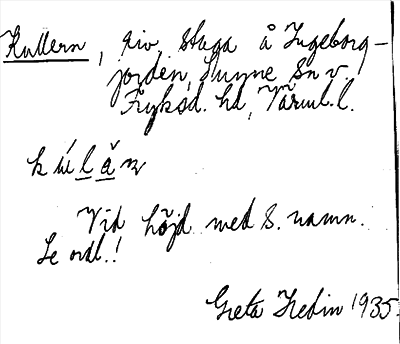 Kullern, riv. stuga å Ingeborg-
jorden, Sunne Sn v.
Fryksd. hd, Värml. l.
kúlăn
Vid höjd med s. namn.
Se ordl.!
Greta Hedin 1935.